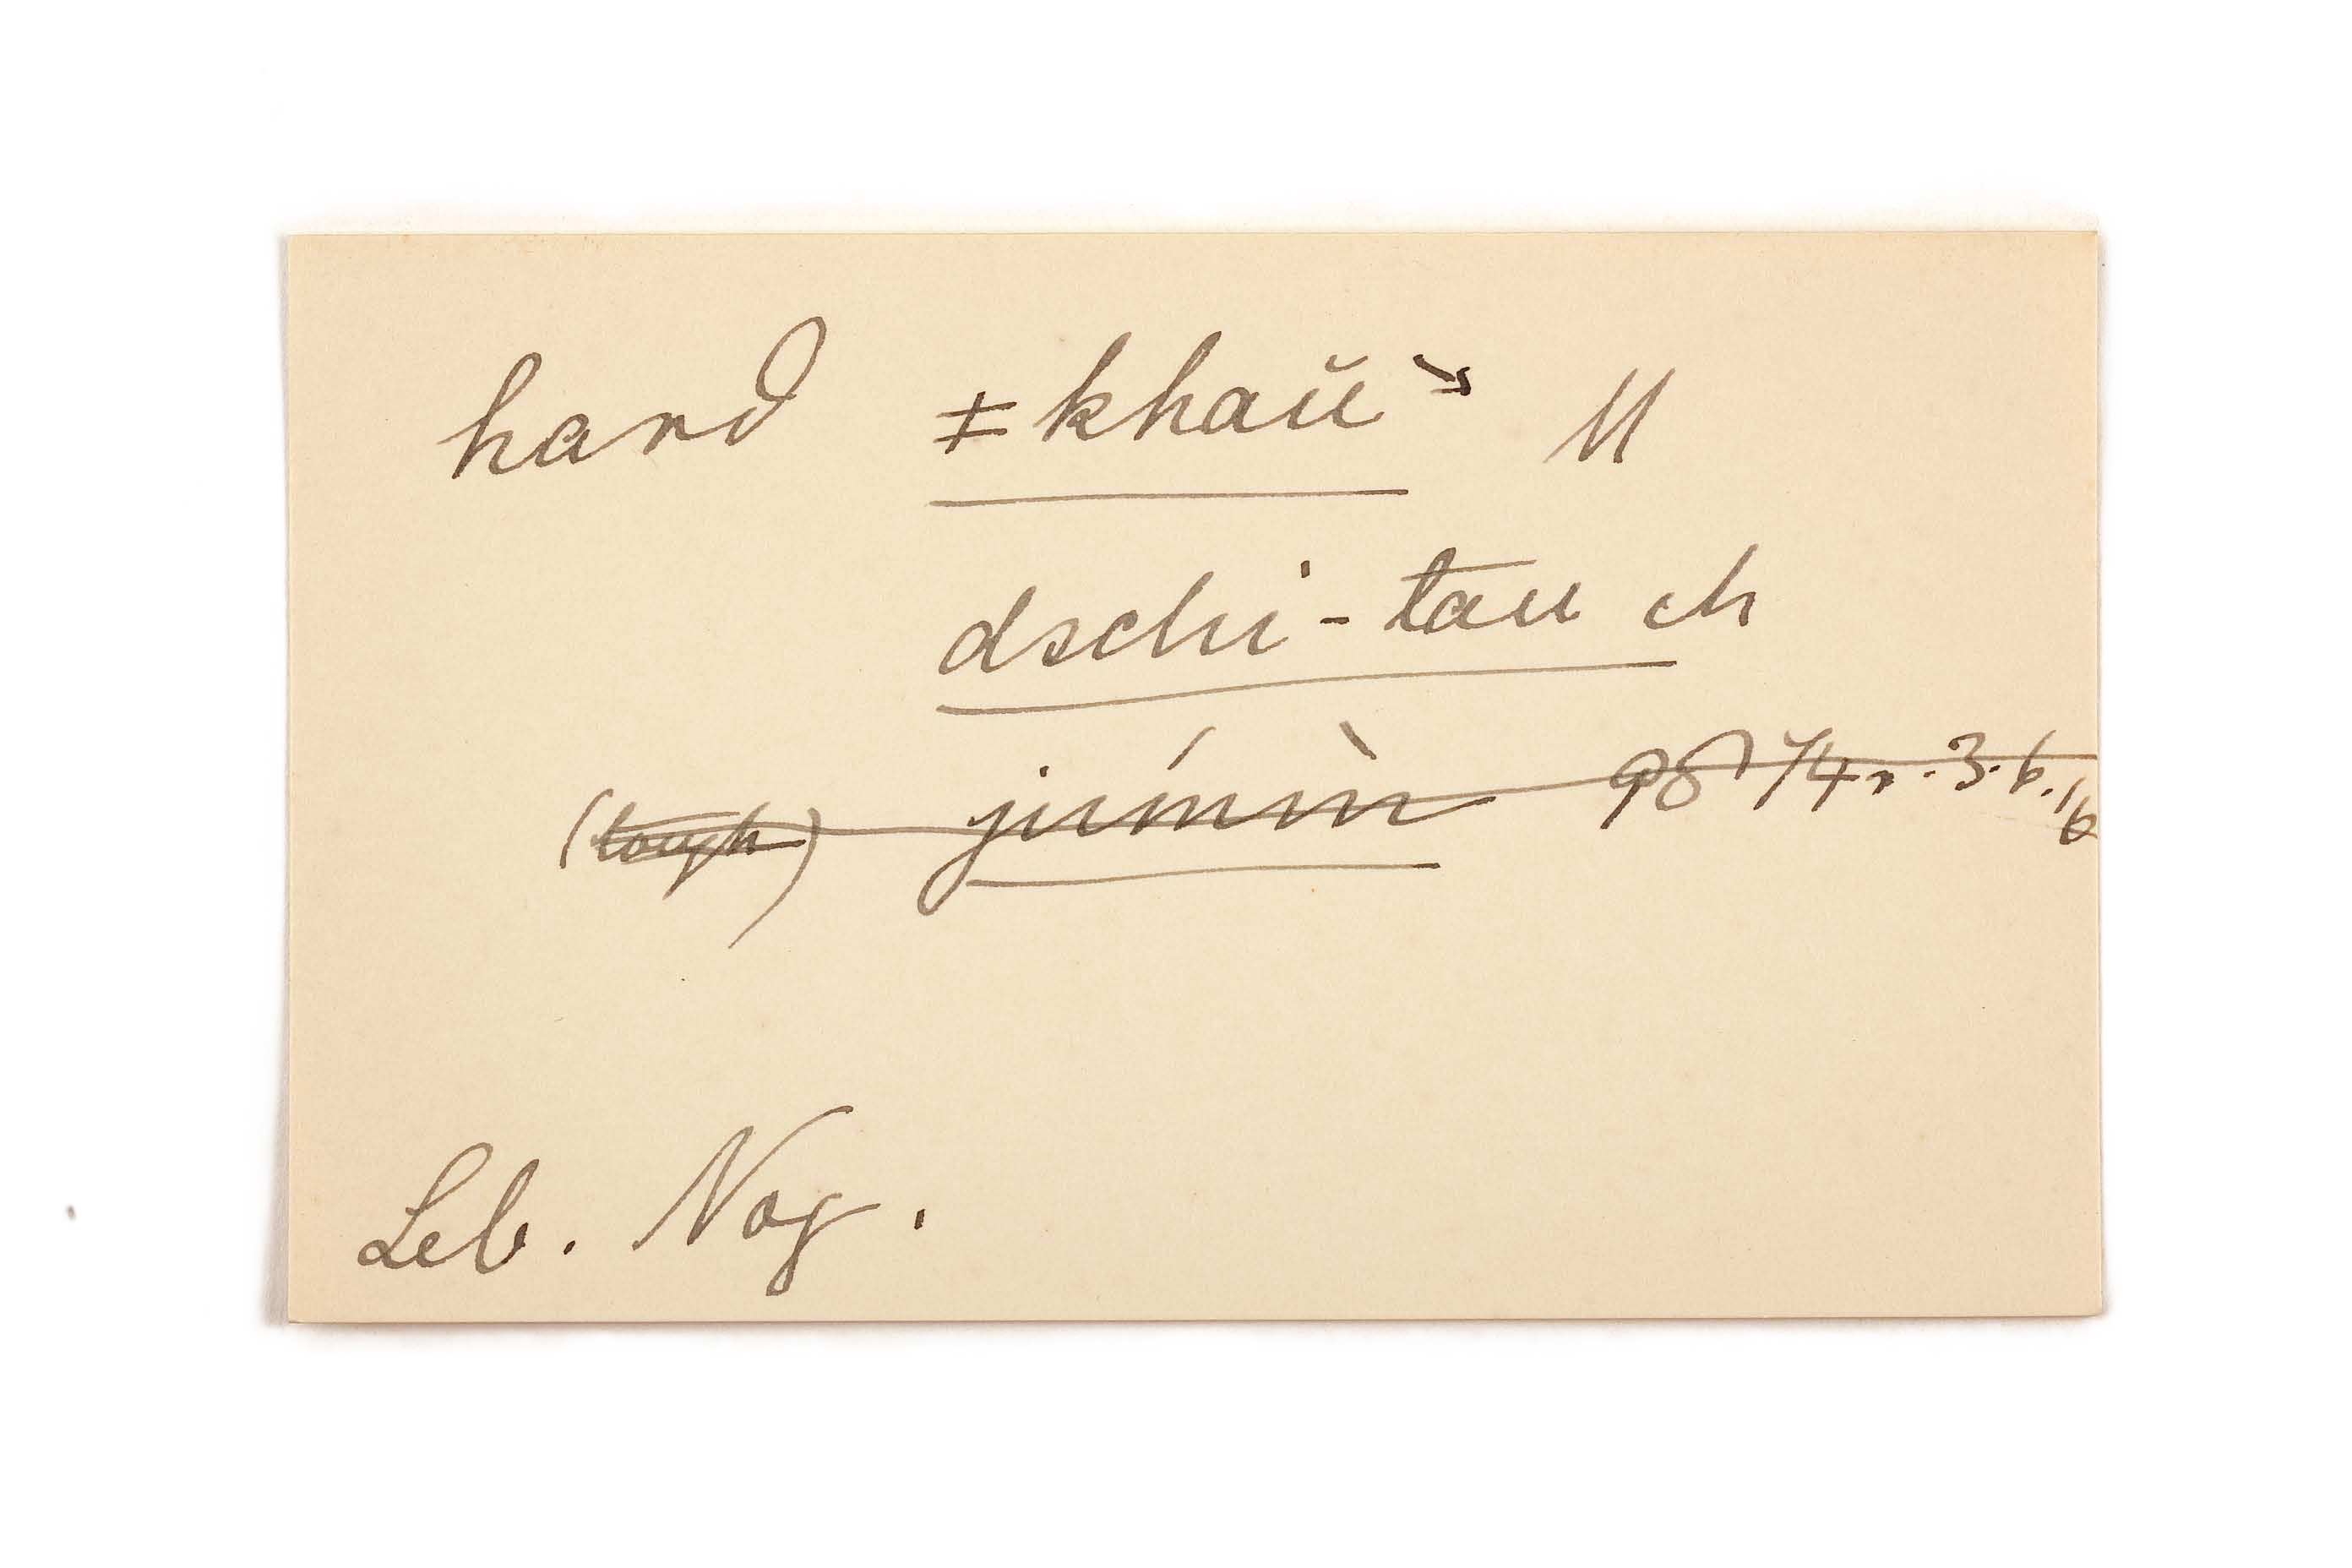 hard ǂkhaŭ M
dschi-tau ch
(tough) júmìn 98 74r. 3.6.16
Leb. Nog.